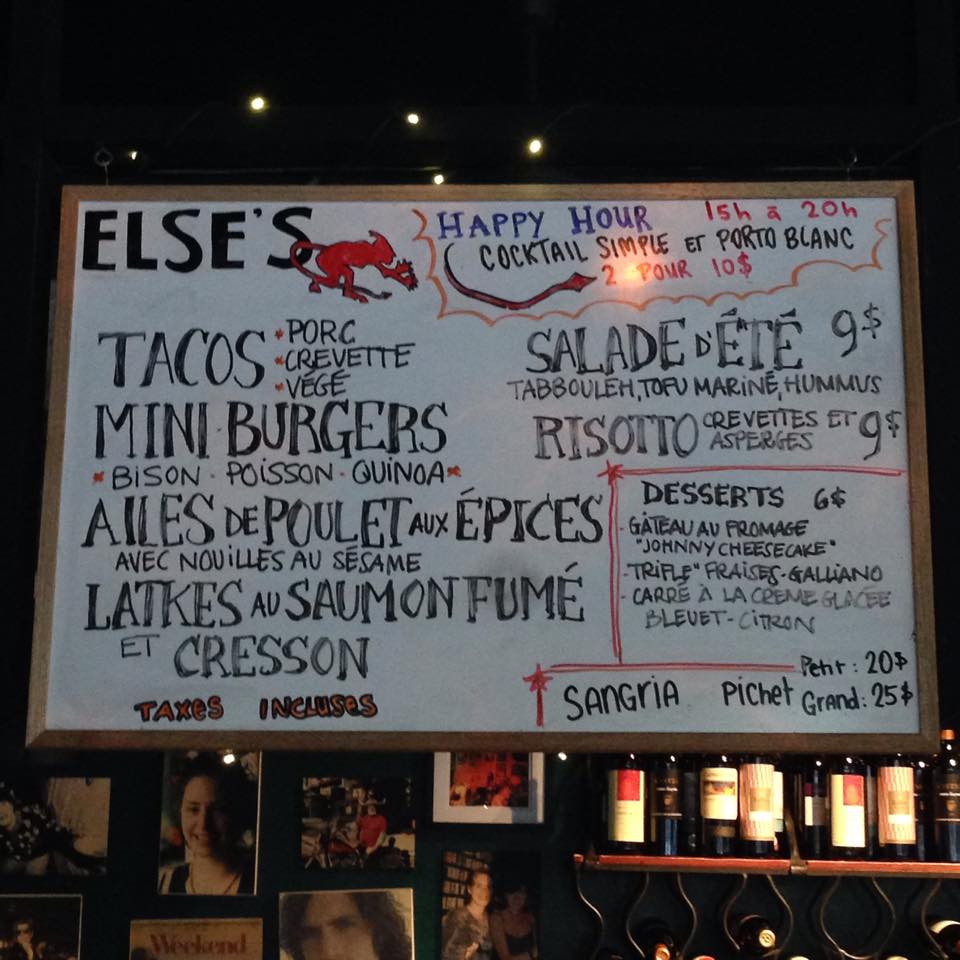 ELSE'S
HAPPY HOUR 15h à 20h
COCKTAIL SIMPLE ET PORTO BLANC
2 POUR 10$
TACOS
*PORC
*CREVETTE
*VÉGÉ
MINI BURGERS
*BISON - POISSON - QUINOA*
AILES DE POULET AUX ÉPICES
AVEC NOUILLES AU SÉSAME
LATKES AU SAUMON FUMÉ
ET CRESSON
TAXES INCLUSES
SALADE D'ÉTÉ 9$
TABBOULEH, TOFU MARINÉ, HUMMUS
RISOTTO CREVETTES ET 9$
ASPERGES
DESSERTS 6$
- GÂTEAU AU FROMAGE
"JOHNNY CHEESECAKE"
- TRIFLE" FRAISES - GALLIANO
- CARRÉ À LA CRÈME GLACÉE
BLEUET - CITRON
SANGRIA PICHET
Petit : 20$
Grand : 25$
Weekend